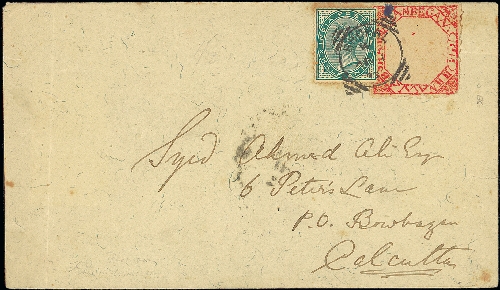 Syed Ahmed Ali Esq
6 Peter's Lane
P.O. Bowbazar
Calcutta